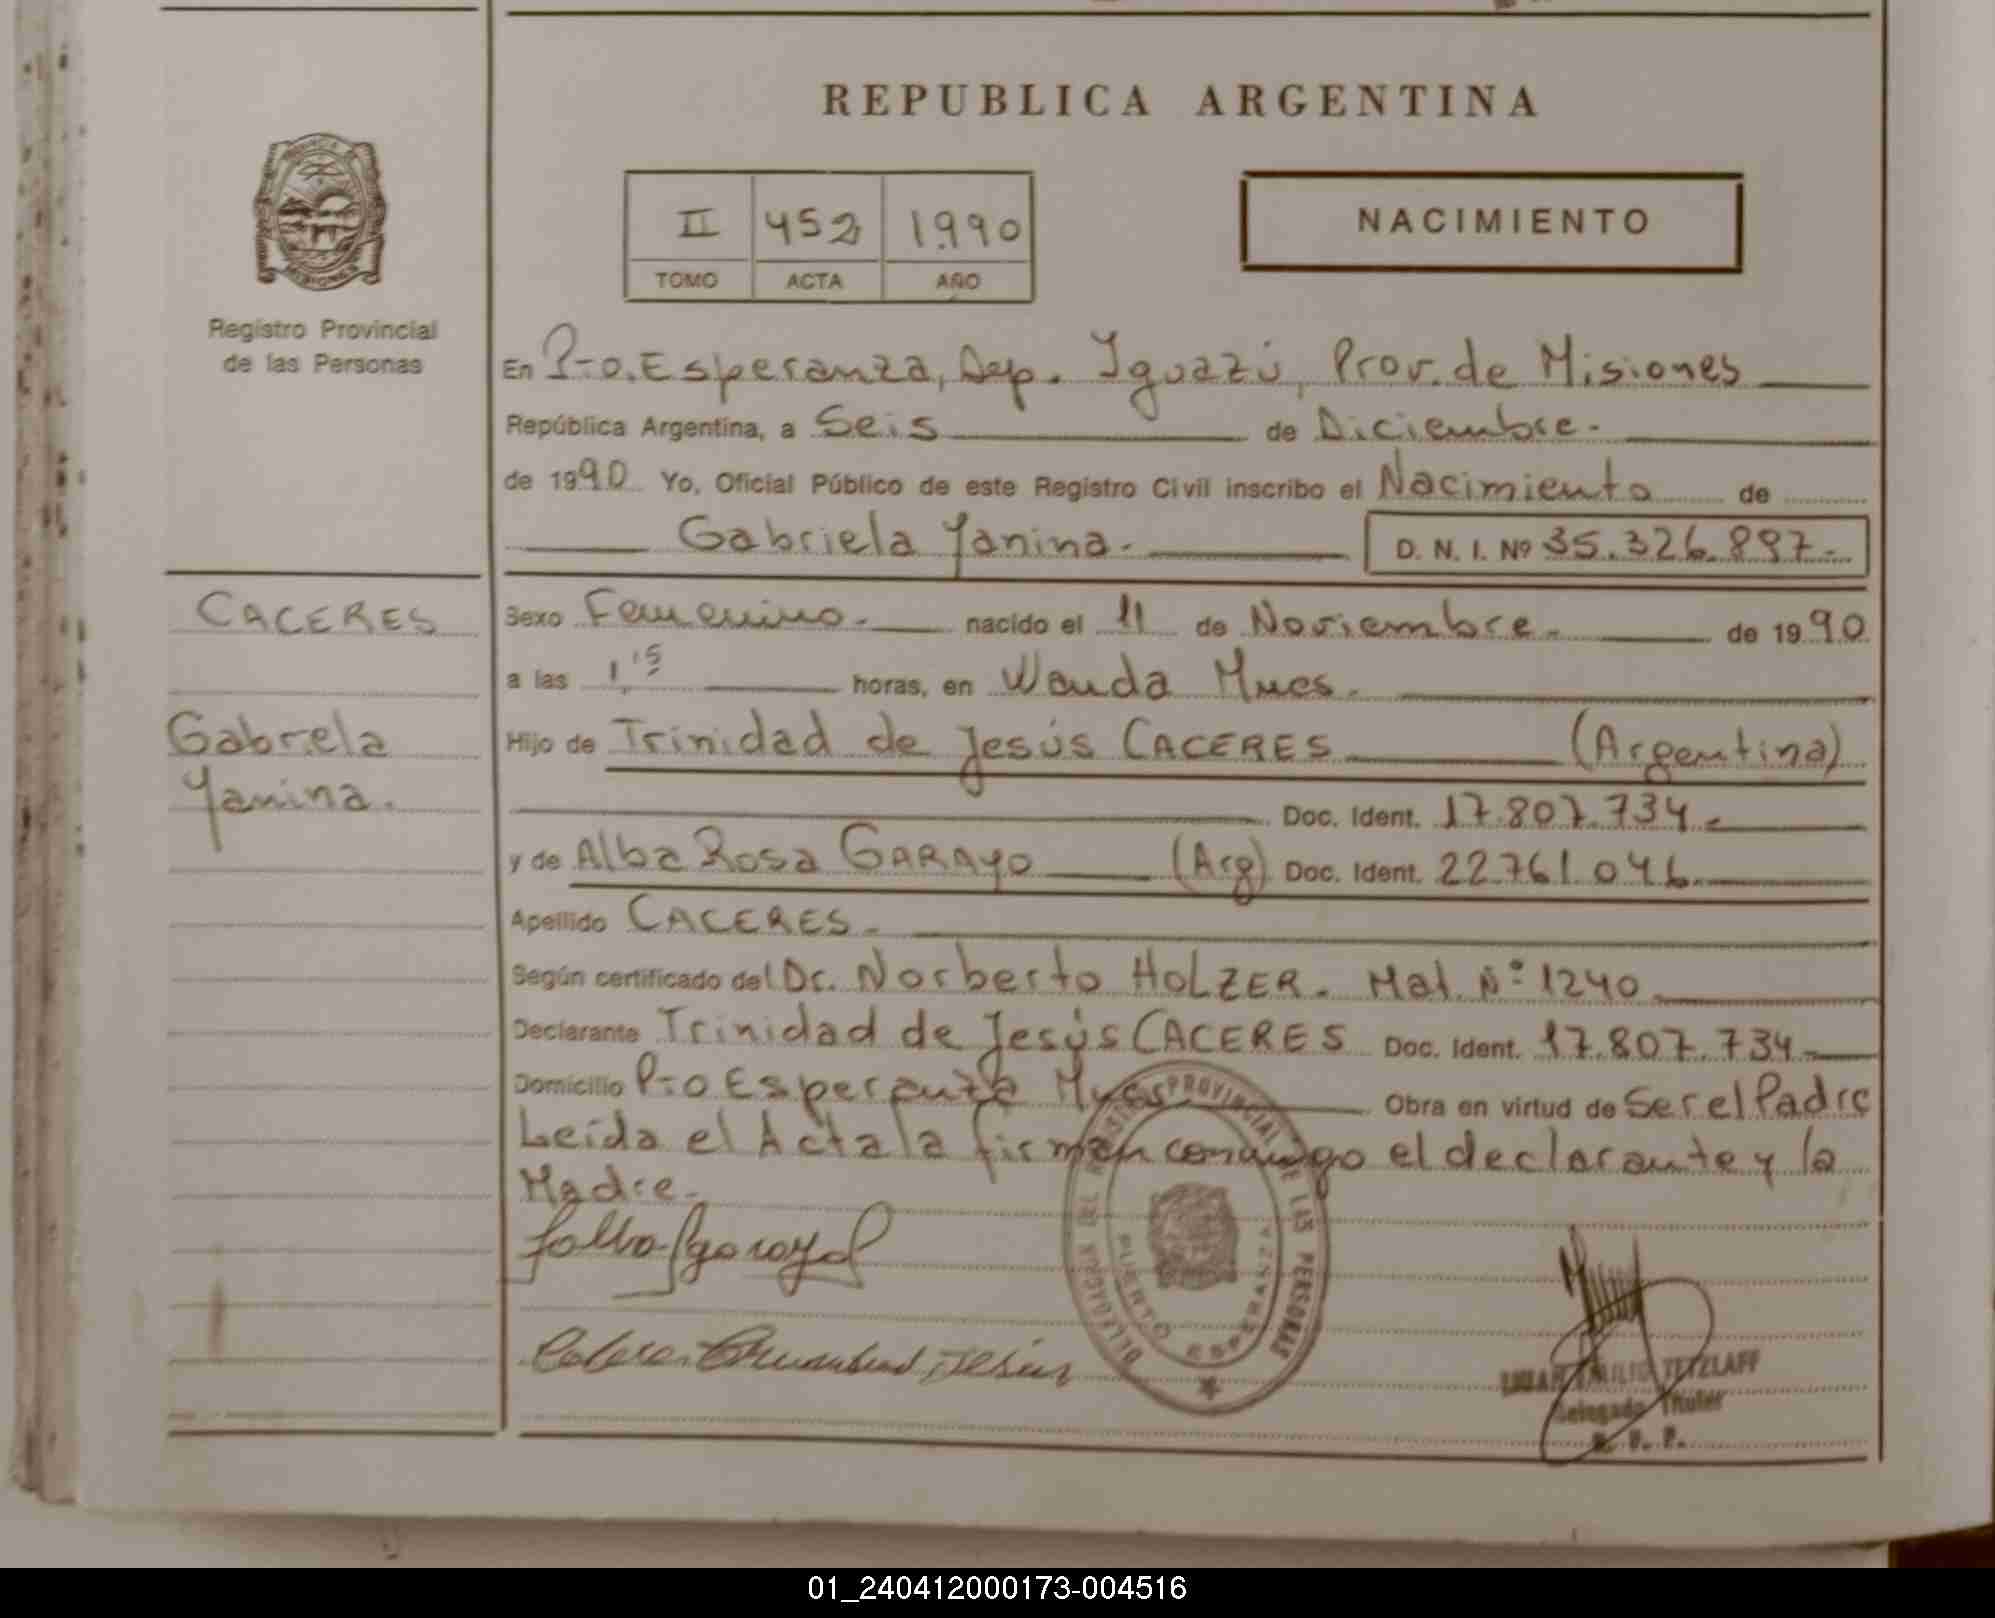 REPUBLICA ARGENTINA
II 452 1990
TOMO ACTA AÑO
NACIMIENTO
Registro Provincial
de las Personas
En Pto. Esperanza, Dep. Iguazú, Prov. de Misiones
República Argentina, a Seis de Diciembre.
de 1990 Yo, Oficial Público de este Registro Civil inscribo el Nacimiento de
Gabriela Yanina. D. N. I. Nº 35.326.897.-
CACERES
Gabriela
Yanina.
Sexo Femenino. nacido el 11 de Noviembre. de 1990
a las 1,15 horas, en Wanda Mnes.
Hijo de Trinidad de Jesús CACERES (Argentina)
Doc. Ident. 17.807.734.-
y de Alba Rosa GARAYO (Arg) Doc. Ident. 22.761.046.
Apellido CACERES.
Según certificado del Dr. Norberto HOLZER. Mat. Nº 1240
Declarante Trinidad de Jesús CACERES Doc. Ident. 17.807.734.
Domicilio Pto Esperanza Mnes. Obra en virtud de Ser el Padre
Leída el Acta la firman conmigo el declarante y la
Madre.
DELEGACION DEL REGISTRO PROVINCIAL DE LAS PERSONAS
PUERTO ESPERANZA
TETZLAFF
Delegado Titular
R. P. P.
01_240412000173-004516